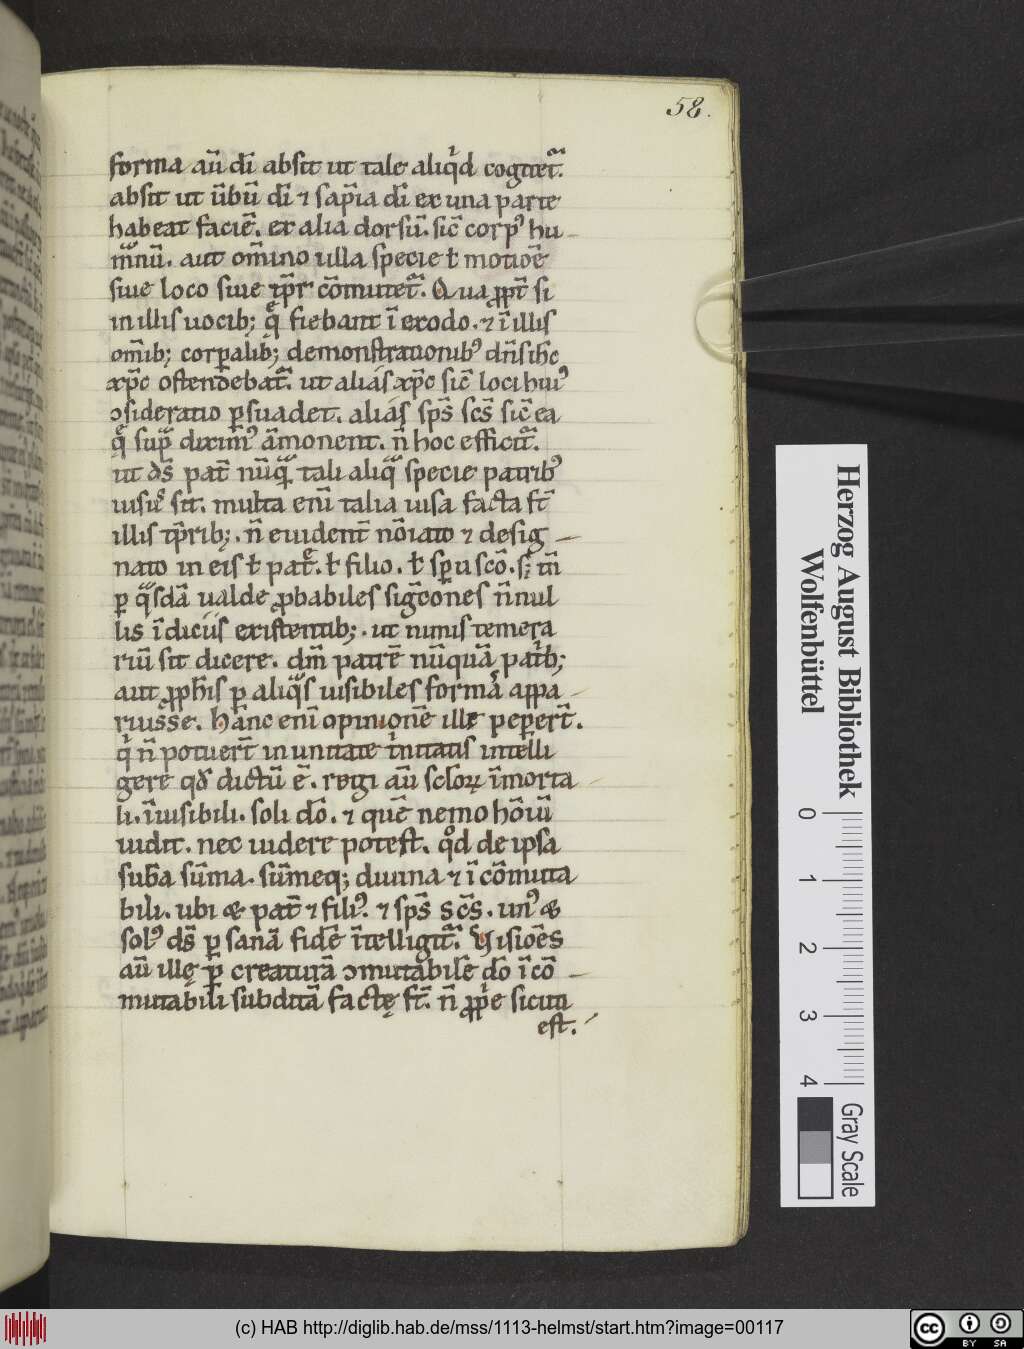 58.
forma aū dī absit ut tale aliqͥd cogitet᷑.
absit ut ūbū dī ⁊ sap̄ia dī ex una parte
habeat faciē. ex alia dorsū. sic̄ corpꝰ hu
m̄nū. aut om̄ino ulla specie ɫ motioē
siue loco siue tp̄r cōmutet᷑. Qua ꝓpt̄ si
in illis uocib; q̄ fiebant ī exodo. ⁊ ī illis
om̄ib; corp̄alib; demonstrationibꝰ dn̄s ih̄c
xp̄c ostendebat᷑. ut alias xp̄c sic̄ loci huiꝰ
ꝯsideratio ꝑsuadet. alias sp̄s sc̄s sic̄ ea
q̄ sup̄ diximꝰ āmonent. n̄ hoc efficit᷑.
ut ds̄ pat̄ nūqᷓ tali aliqᷓ specie patribꝰ
uisus sit. multa enī talia uisa facta st̄
illis tp̄rib;. n̄ euident̄ nōiato ⁊ desig
nato in eis ɫ pat̄. ɫ filio. ɫ sp̄u scō. s; tn̄
ꝑ qᷓsdā ualde ꝓbabiles siḡcōnes n̄nul
lis īdiciis existentib;. ut nimis temera
riū sit dicere. dm̄ patrē nūquā patͥb;
aut ꝓph̄is ꝑ aliqᷓs uisibiles formas appa
ruisse. Hanc enī opinionē ille pepert̄.
qͥ n̄ potuert̄ in unitate tͥnitatis intelli
gere qđ dictū ē. regi aū scl̄oꝝ īmorta
li. īuisibili. soli dō. ⁊ quē nemo hōiū
uidit. nec uidere potest. qͦd de ipsa
subā sūma. sūmeq; diuina ⁊ ī cōmuta
bili. ubi & pat̄ ⁊ filiꝰ. ⁊ sp̄s sc̄s. unꝰ &
solꝰ ds̄ ꝑ sanā fidē ītelligit᷑. Visioēs
aū illę ꝑ creaturā ꝯmutabilē dō ī cō
mutabili subditā factę st̄. n̄ ꝓpͥe sicuti
est.
Herzog August Bibliothek
Wolfenbüttel
0 1 2 3 4
Gray Scale
(c) HAB http://diglib.hab.de/mss/1113-helmst/start.htm?image=00117
cc BY SA